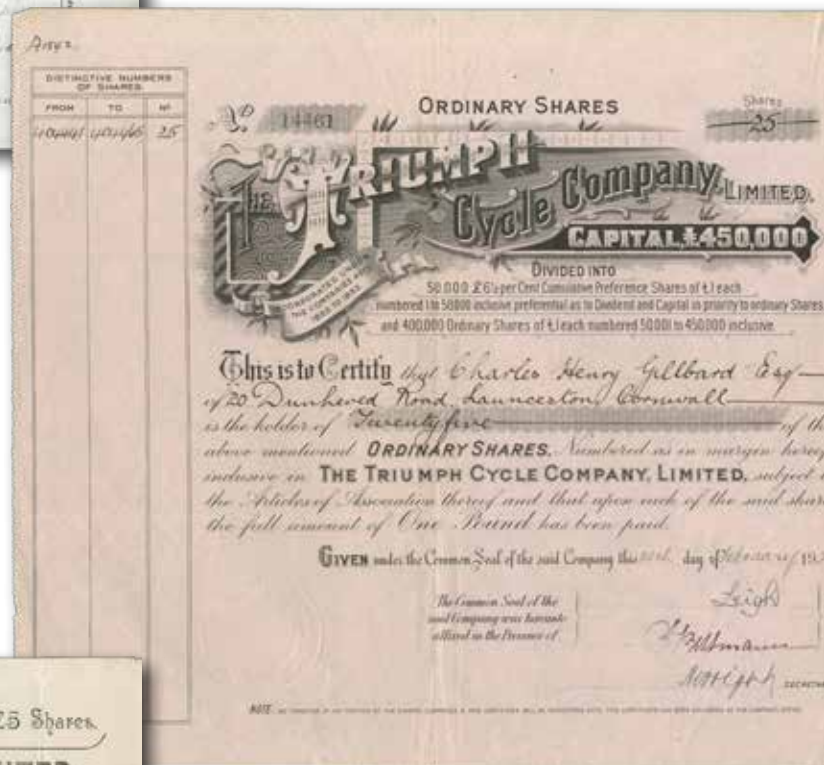 A1542
DISTINCTIVE NUMBERS
OF SHARES.
FROM TO Nº
404441 404465 25
ORDINARY SHARES
Nº 14461
Shares
25
THE TRIUMPH
Cycle Company, LIMITED.
CAPITAL, £450,000
INCORPORATED UNDER
THE COMPANIES ACTS
DIVIDED INTO
50,000 £6½ per Cent Cumulative Preference Shares of £1 each
numbered 1 to 50000 inclusive preferential as to Dividend and Capital in priority to ordinary Shares
and 400,000 Ordinary Shares of £1 each numbered 50,001 to 450000 inclusive.
This is to Certify that Charles Henry Gillbard Esq
of 20 Dunheved Road, Launceston, Cornwall
is the holder of Twentyfive of the
above mentioned ORDINARY SHARES, Numbered as in margin hereof
inclusive in THE TRIUMPH CYCLE COMPANY, LIMITED, subject
the Articles of Association thereof and that upon each of the said
the full amount of One Pound has been paid.
GIVEN under the Common Seal of the said Company this day of February 19
The Common Seal of the
said Company was hereunto
affixed in the Presence of
Leigh
NOTE
25 Shares.